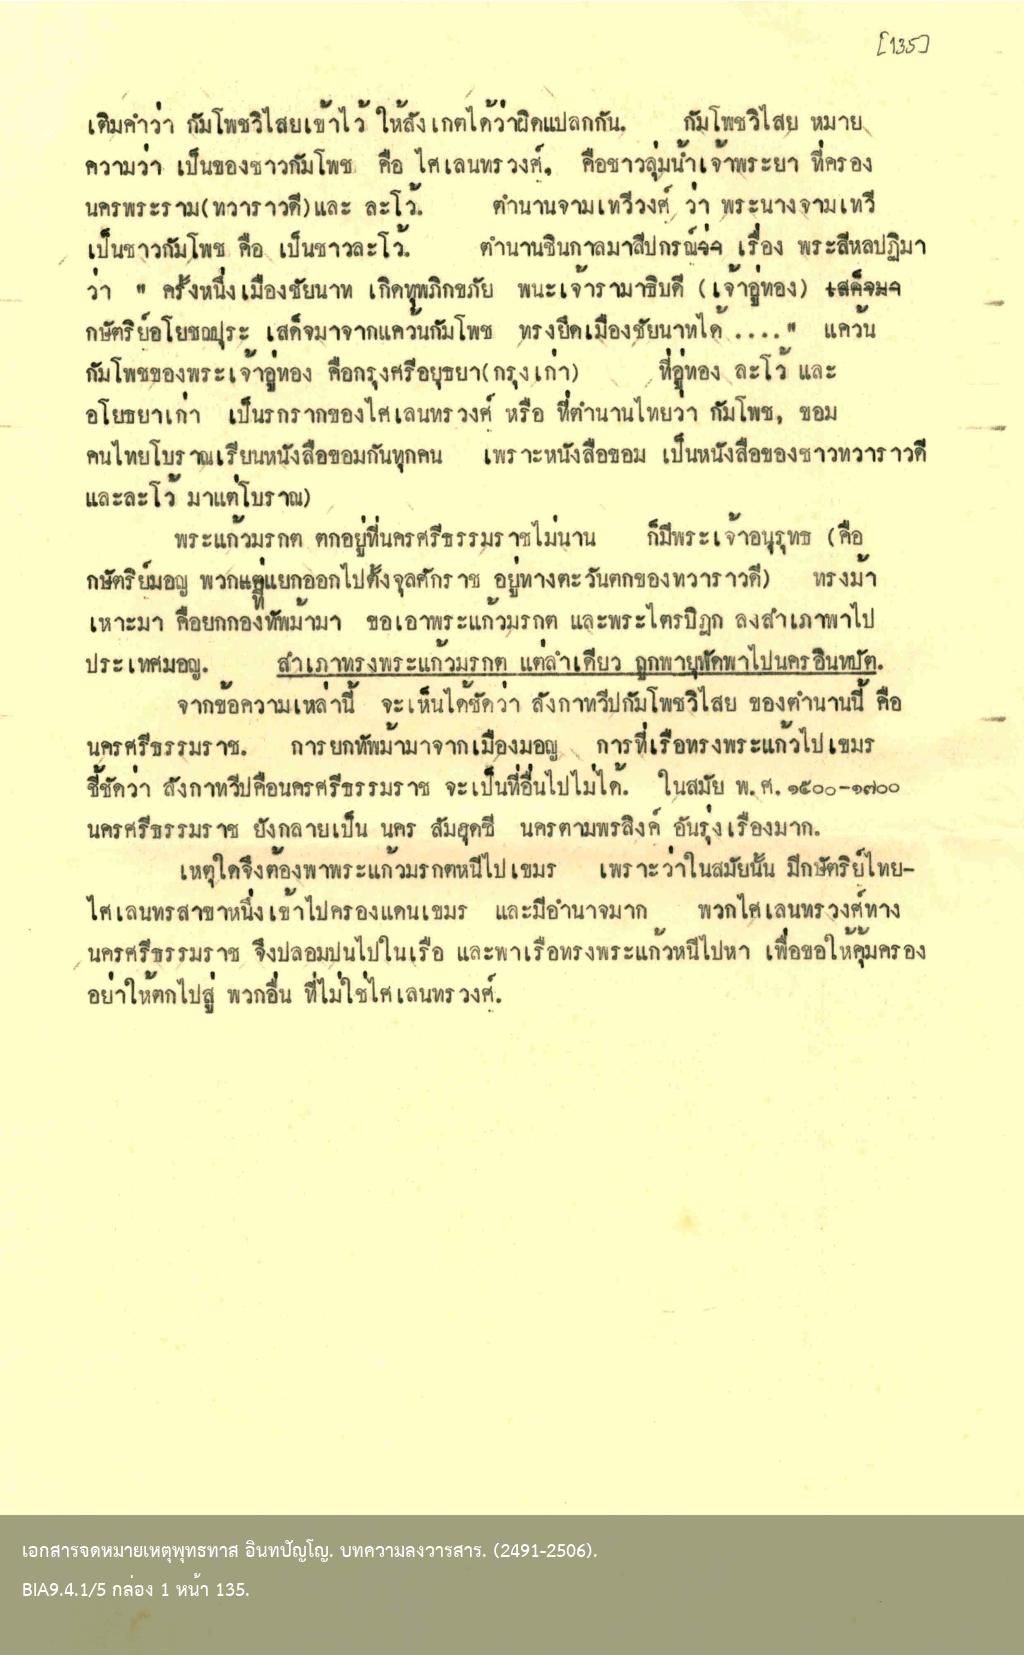 [135]
เติมคำว่า กัมโพชวิไสยเข้าไว้ ให้สังเกตได้ว่าผิดแปลกกัน. กัมโพชวิไสย หมาย
ความว่า เป็นของชาวกัมโพช คือ ไศเลนทรวงศ์. คือชาวลุ่มน้ำเจ้าพระยา ที่ครอง
นครพระราม(ทวาราวดี)และ ละโว้. ตำนานจามเทวีวงศ์ ว่า พระนางจามเทวี
เป็นชาวกัมโพช คือ เป็นชาวละโว้. ตำนานชินกาลมาลีปกรณ์ เรื่อง พระสีหลปฏิมา
ว่า " ครั้งหนึ่งเมืองชัยนาท เกิดทุพภิกขภัย พนะเจ้ารามาธิบดี (เจ้าอู่ทอง) เสด็จมจ
กษัตริย์อโยชฌปุระ เสด็จมาจากแคว้นกัมโพช ทรงยึดเมืองชัยนาทได้ ...." แคว้น
กัมโพชของพระเจ้าอู่ทอง คือกรุงศรีอยุธยา(กรุงเก่า) ที่อู่ทอง ละโว้ และ
อโยธยาเก่า เป็นรกรากของไศเลนทรวงศ์ หรือ ที่ตำนานไทยว่า กัมโพช, ขอม
คนไทยโบราณเรียนหนังสือขอมกันทุกคน เพราะหนังสือขอม เป็นหนังสือของชาวทวาราวดี
และละโว้ มาแต่โบราณ)
พระแก้วมรกต ตกอยู่ที่นครศรีธรรมราชไม่นาน ก็มีพระเจ้าอนุรุทธ (คือ
กษัตริย์มอญ พวกที่แยกออกไปตั้งจุลศักราช อยู่ทางตะวันตกของทวาราวดี) ทรงม้า
เหาะมา คือยกกองทัพม้ามา ขอเอาพระแก้วมรกต และพระไตรปิฎก ลงสำเภาพาไป
ประเทศมอญ. สำเภาทรงพระแก้วมรกต แต่ลำเดียว ถูกพายุพัดพาไปนครอินทปัต.
จากข้อความเหล่านี้ จะเห็นได้ชัดว่า ลังกาทวีปกัมโพชวิไสย ของตำนานนี้ คือ
นครศรีธรรมราช. การยกทัพม้ามาจากเมืองมอญ การที่เรือทรงพระแก้วไปเขมร
ชี้ชัดว่า ลังกาทวีปคือนครศรีธรรมราช จะเป็นที่อื่นไปไม่ได้. ในสมัย พ.ศ.๑๕๐๐-๑๗๐๐
นครศรีธรรมราช ยังกลายเป็น นคร สัมฮุดซี นครตามพรลิงค์ อันรุ่งเรืองมาก.
เหตุใดจึงต้องพาพระแก้วมรกตหนีไปเขมร เพราะว่าในสมัยนั้น มีกษัตริย์ไทย-
ไศเลนทรสาขาหนึ่งเข้าไปครองแดนเขมร และมีอำนาจมาก พวกไศเลนทรวงศ์ทาง
นครศรีธรรมราช จึงปลอมปนไปในเรือ และพาเรือทรงพระแก้วหนีไปหา เพื่อขอให้คุ้มครอง
อย่าให้ตกไปสู่ พวกอื่น ที่ไม่ใช่ไศเลนทรวงศ์.
เอกสารจดหมายเหตุพุทธทาส อินทปัญโญ. บทความลงวารสาร. (2491-2506).
BIA9.4.1/5 กล่อง 1 หน้า 135.